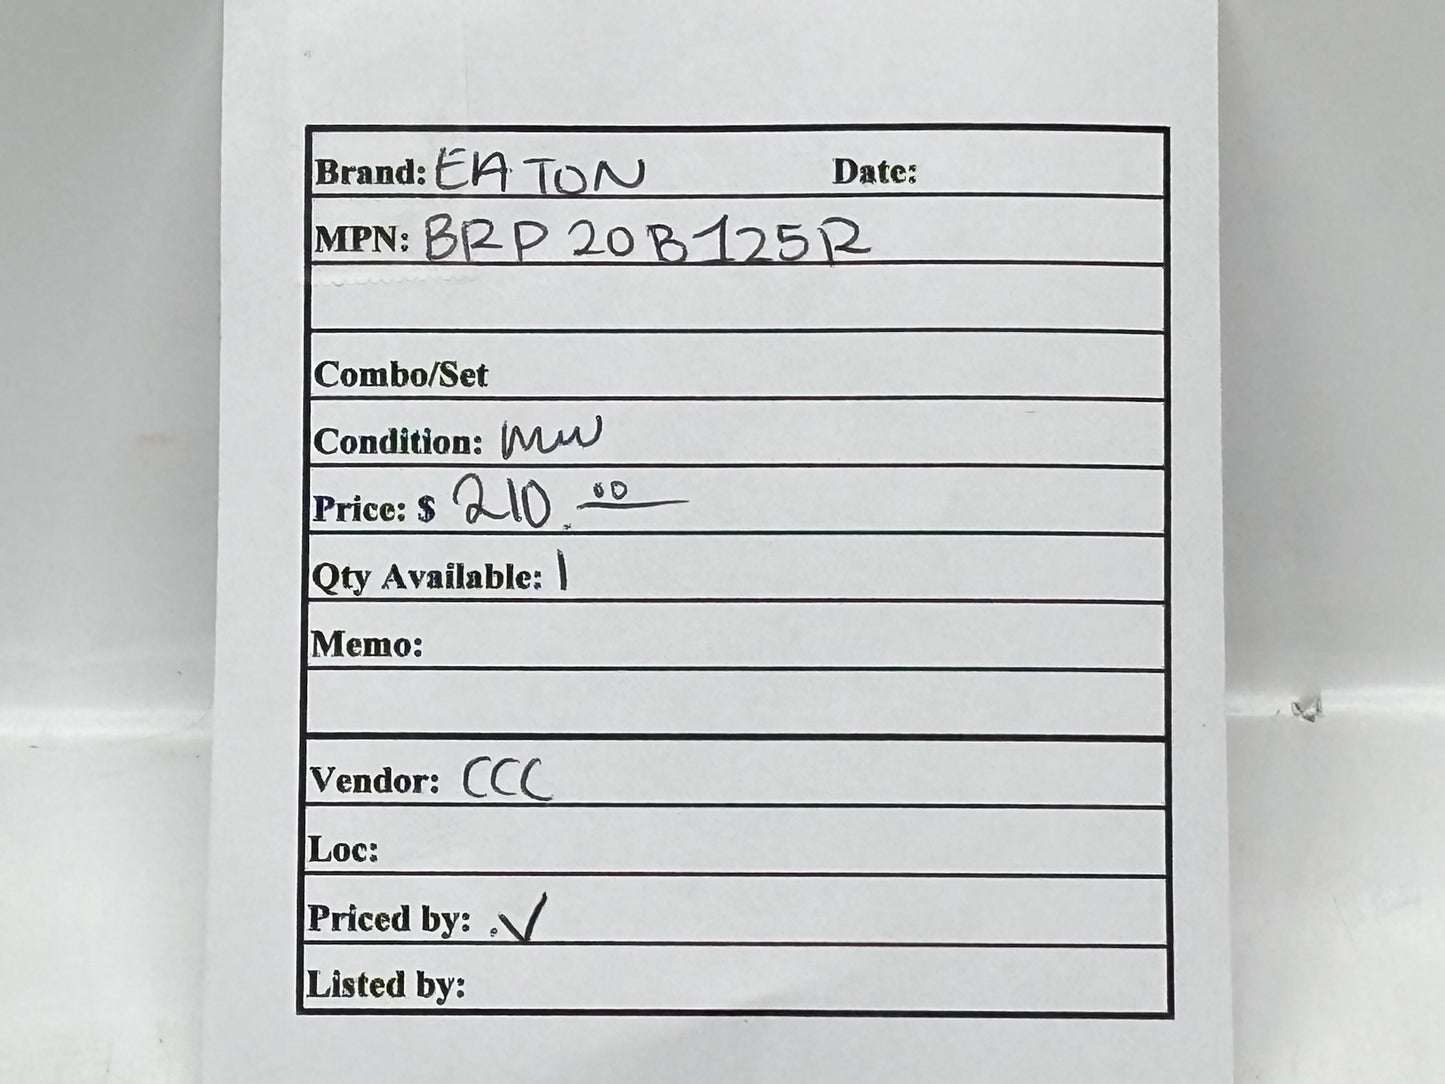 Brand: EATON Date:
MPN: BRP20B125R
Combo/Set
Condition:
Price: $ 210.00
Qty Available: 1
Memo:
Vendor: CCC
Loc:
Priced by: ✓
Listed by: